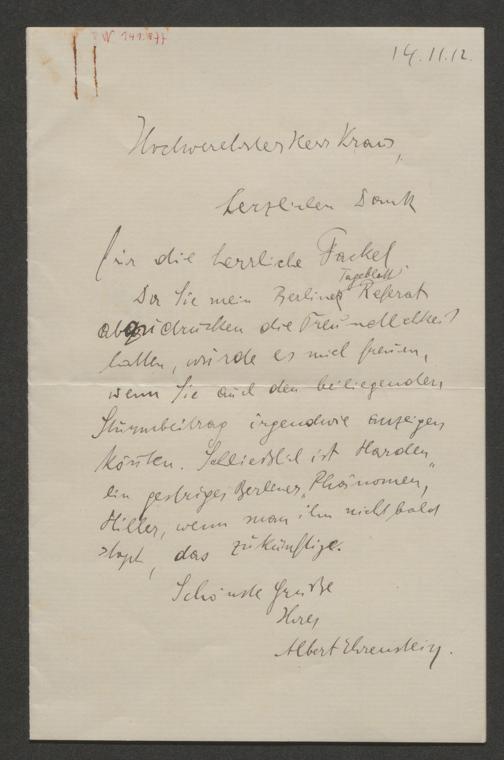 14.11.12.
Hochverehrtester Herr Kraus,
herzlichen Dank
für die herrliche Fackel
Tageblatt
Da Sie mein Berliner Referat
abzudrucken die Freundlichkeit
hatten, würde es mich freuen,
wenn Sie auch den beiliegenden
Sturmbeitrag irgendwie anzeigen
könnten. Schliesslich ist Harden
ein gestriges Berliner „Phänomen“,
Hiller, wenn man ihn nicht bald
stopft, das zukünftige.
Schönste Grüße
Ihres
Albert Ehrenstein.